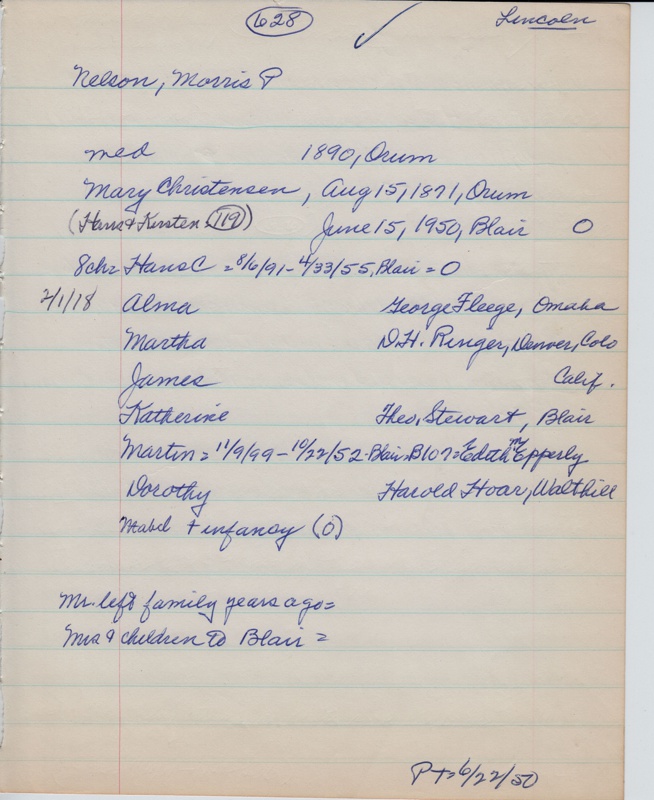 628
Lincoln
Nelson, Morris P
med 1890, Orum
Mary Christensen, Aug 15, 1871, Orum
(Hans & Kirsten 119) June 15, 1950, Blair O
8ch= Hans C = 8/6/91 - 4/33/55, Blair = O
2/1/18 Alma George Fleege, Omaha
Martha D.H. Ringer, Denver, Colo
James Calif.
Katherine Theo. Stewart, Blair
Martin = 11/9/99 - 10/22/52 - Blair = B107 = Edith M Epperly
Dorothy Harold Hoar, Walthill
Mabel + infancy (O)
Mr. left family years ago =
Mrs & children to Blair =
P+= 6/22/50